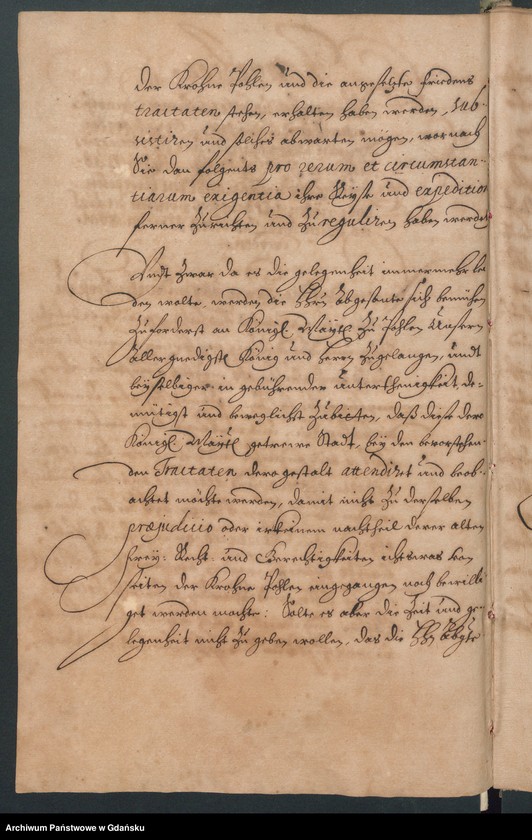 der Krohne Pohlen und die angesetzte Friedens
tractaten stehen, erhalten haben werden, sub-
sistiren und solches abwarten mögen, wornach
Sie dan folgents pro rerum et circumstan-
tiarum exigentia ihre Reyse und expedition
ferner zurichten und zu reguliren haben werden
Undt zwar da es die gelegenheit immermehr lei-
den wolte, werden die HHn Abgesante sich bemühen
zuforderst an Königl Maytt zu Pohlen Unsern
Allergnedigst König und Herrn zugelangen, undt
beyselbiger in gebührender unterthenigkeit, de-
mütigst und beweglichst zubitten, daß diese dero
Königl Maytt getrewe Stadt, bey den bevorstehen-
den Tractaten dero gestalt attendiret und beob-
achtet möchte werden, damit nicht zu derselben
præjudicio oder irkeinem nachtheil derer alten
Frey- Recht- und Gerechtigkeiten ichtwas von
seiten der Krohne Pohlen eingegangen noch bewilli-
get werden mochte: Solte es aber die Zeit und ge-
legenheit nicht zu geben wollen, das die HHn Abgte
Archiwum Państwowe w Gdańsku